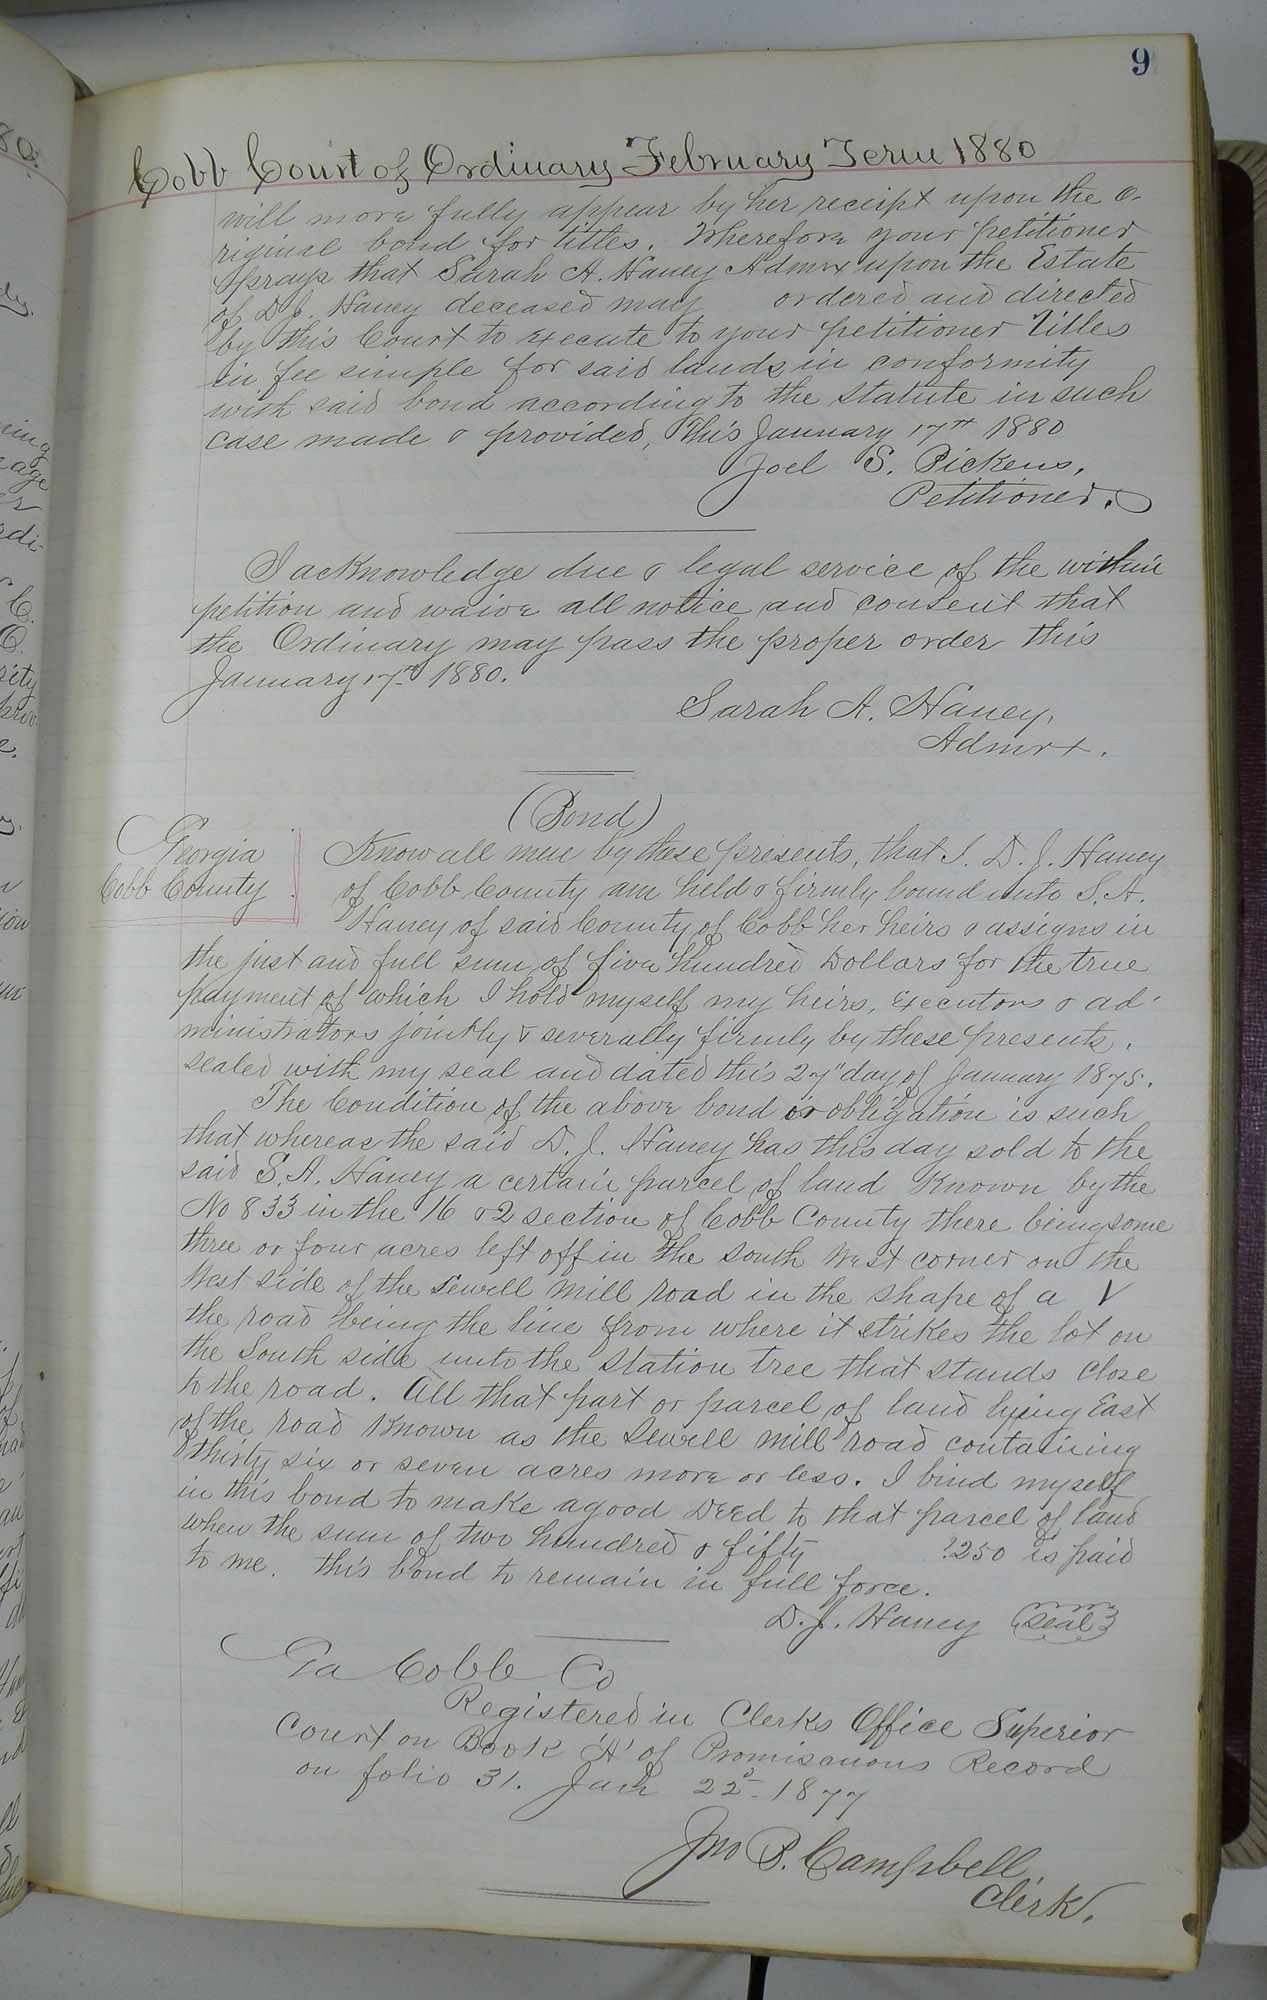 9
Cobb Court of Ordinary February Term 1880
will more fully appear by her receipt upon the o-
riginal bond for titles. Wherefore your petitioner
prays that Sarah A. Haney Admrx upon the Estate
of D. J. Haney deceased may ordered and directed
by this Court to execute to your petitioner Titles
in fee simple for said lands in conformity
with said bond according to the statute in such
case made & provided, This January 17th 1880
Joel S. Pickens,
Petitioner.
I acknowledge due & legal service of the within
petition and waive all notice and consent that
the Ordinary may pass the proper order this
January 17th 1880.
Sarah A. Haney,
Admrx.
(Bond)
Georgia
Cobb County
Know all men by these presents, that I. D. J. Haney
of Cobb County am held & firmly bound unto S. A.
Haney of said County of Cobb her heirs & assigns in
the just and full sum of five hundred Dollars for the true
payment of which I hold myself my heirs, executors & ad-
ministrators jointly & severally firmly by these presents.
sealed with my seal and dated this 27" day of January 1875.
The Condition of the above bond or obligation is such
that whereas the said D. J. Haney has this day sold to the
said S. A. Haney a certain parcel of land Known by the
No 833 in the 16 & 2 section of Cobb County there being some
three or four acres left off in the south West corner on the
West side of the Sewell mill road in the shape of a V
the road being the line from where it strikes the lot on
the South side unto the station tree that stands close
to the road. All that part or parcel of land lying East
of the road Known as the Sewell mill road containing
thirty six or seven acres more or less. I bind myself
in this bond to make a good Deed to that parcel of land
when the sum of two hundred & fifty 250 is paid
to me. this bond to remain in full force.
D. J. Haney (Seal)
Ga Cobb Co
Registered in Clerks Office Superior
Court on Book 'A' of Promiscuous Record
on folio 31. Jan 22d 1877
Jno P. Campbell
Clerk.